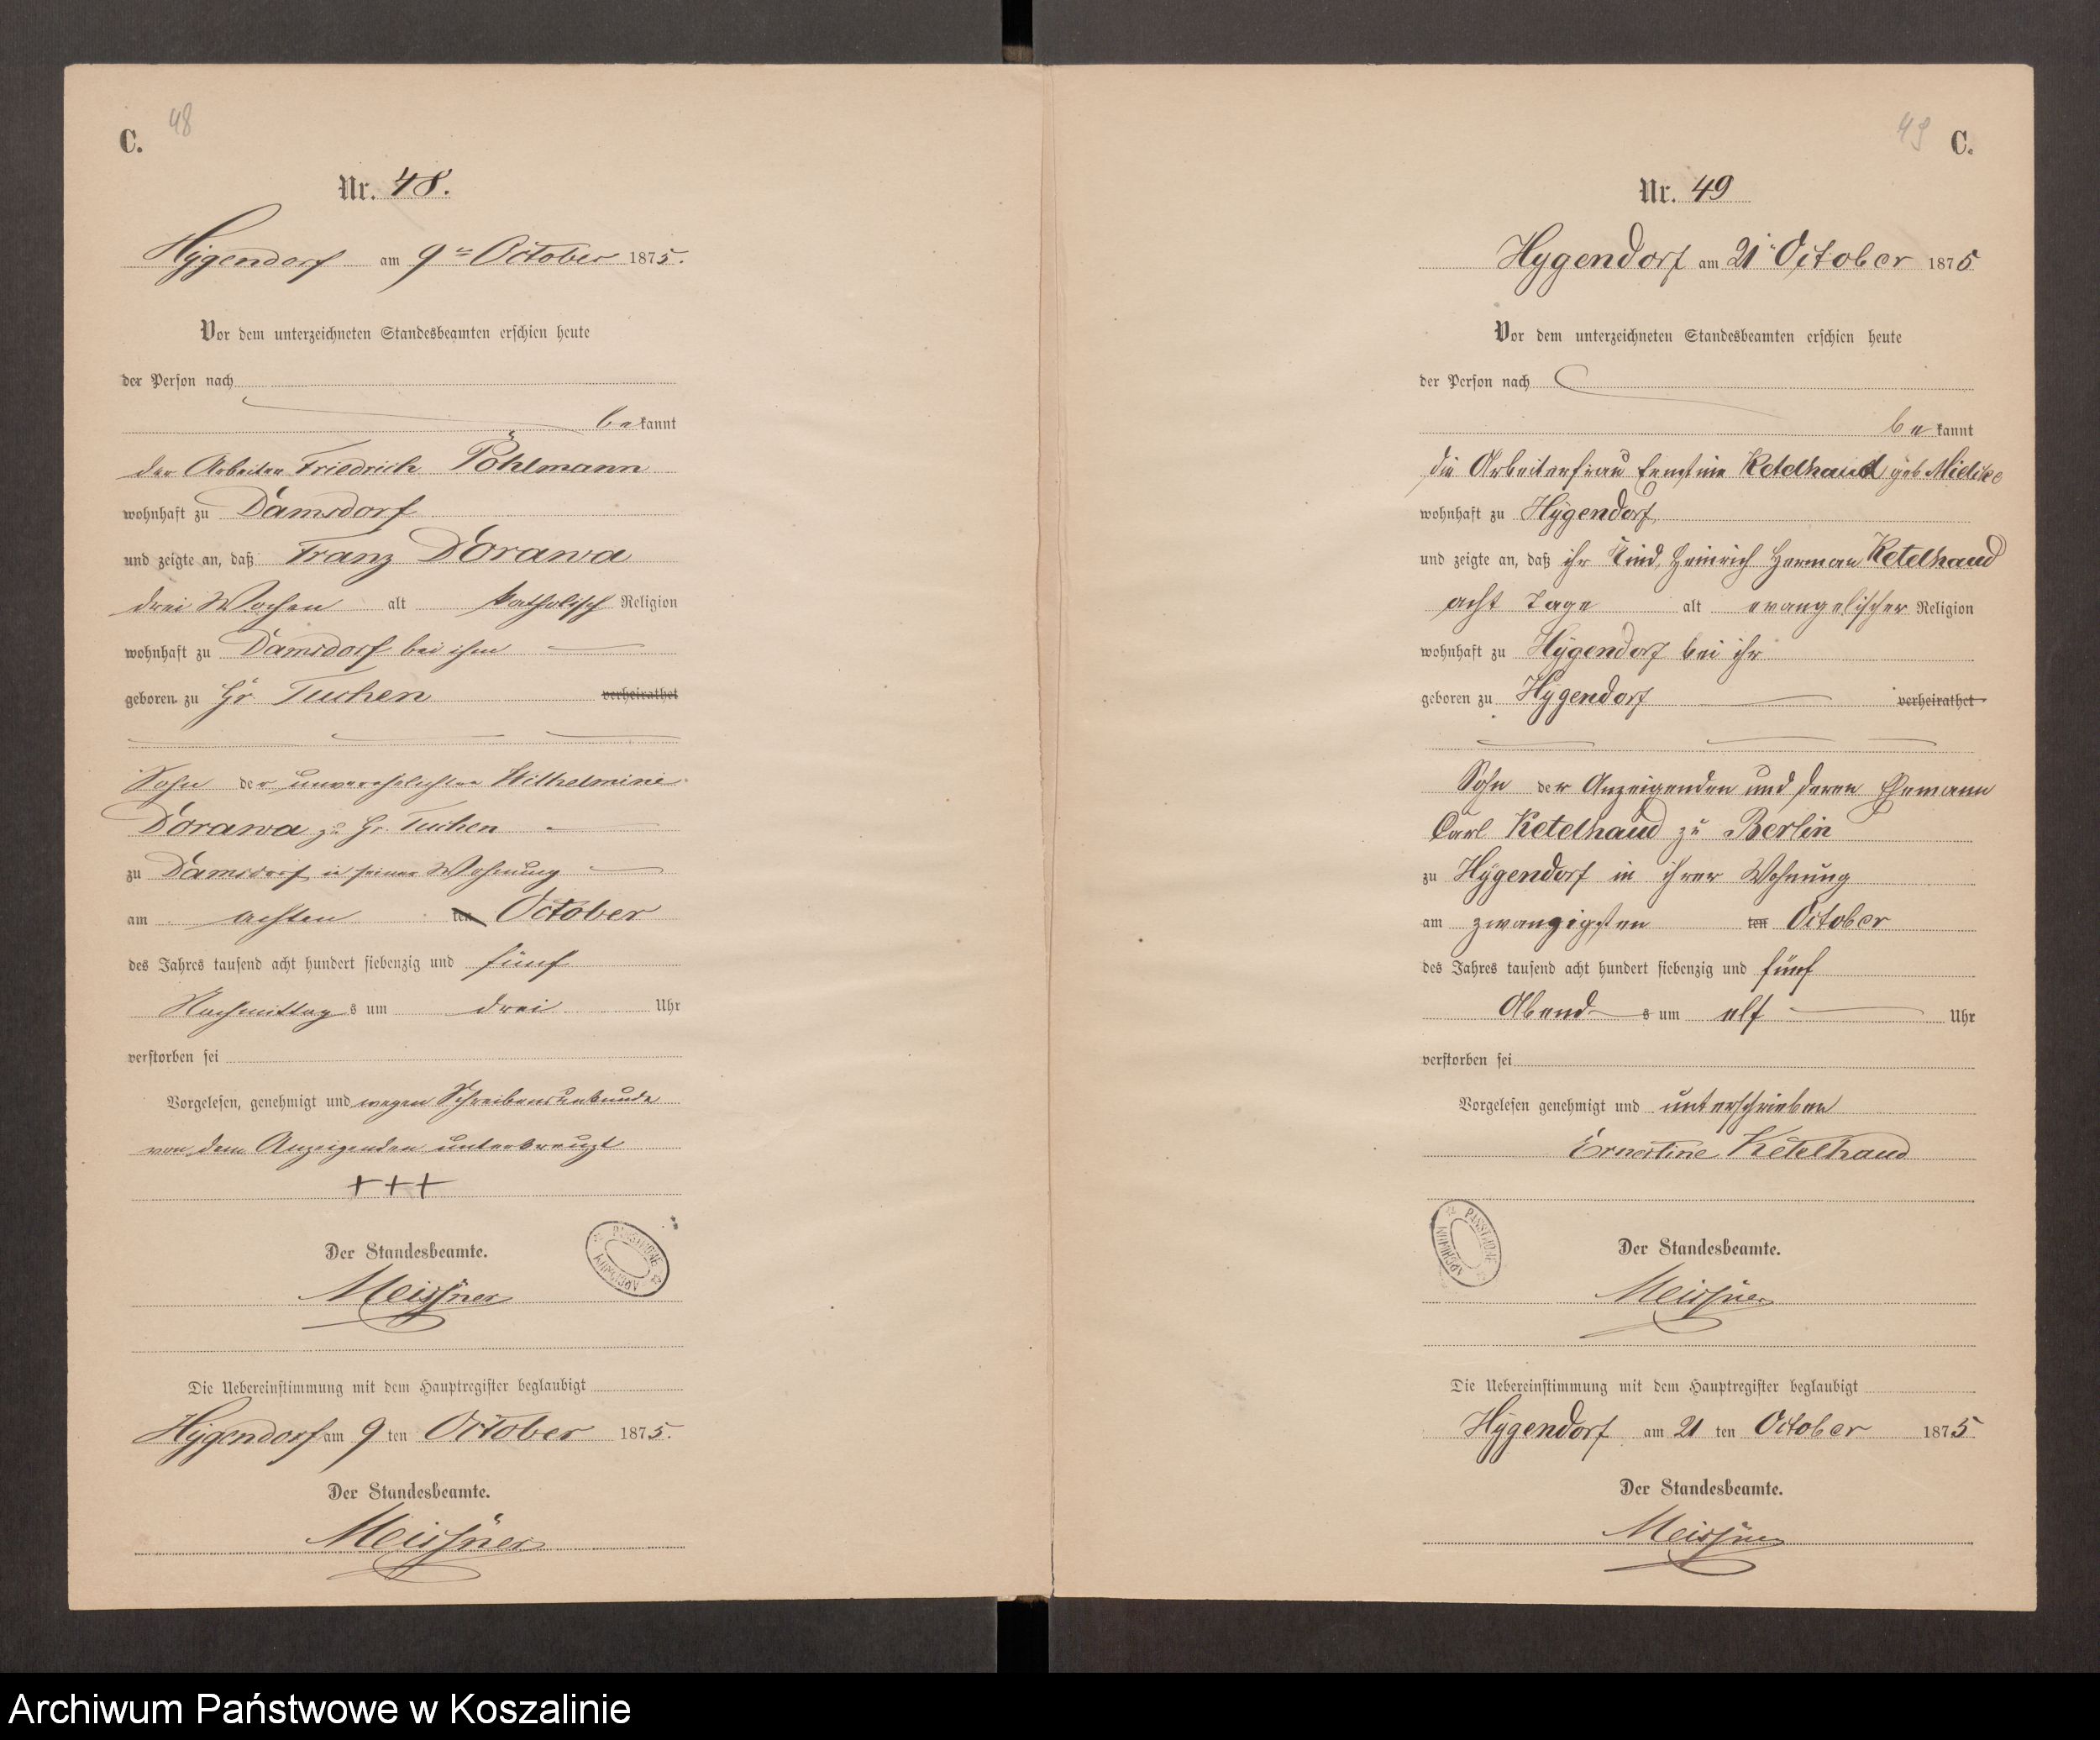 C.
48
Nr. 48.
Hygendorf am 9ten October 1875.
Vor dem unterzeichneten Standesbeamten erschien heute
der Person nach
bekannt
der Arbeiter Friedrich Pöhlmann
wohnhaft zu Damsdorf
und zeigte an, daß Franz Dorawa
drei Wochen alt katholisch Religion
wohnhaft zu Damsdorf bei ihm
geboren zu Gr. Tuchen verheirathet
Sohn der unverehelichten Wilhelmine
Dorawa zu Gr. Tuchen
zu Damsdorf in seiner Wohnung
am achten ten October
des Jahres tausend acht hundert siebenzig und fünf
Nachmittags um drei Uhr
verstorben sei
Vorgelesen, genehmigt und wegen Schreibensunkunde
von dem Anzeigenden unterkreuzt
+++
Der Standesbeamte.
Meissner
Die Uebereinstimmung mit dem Hauptregister beglaubigt
Hygendorf am 9 ten October 1875.
Der Standesbeamte.
Meissner
49
C.
Nr. 49
Hygendorf am 21 October 1875
Vor dem unterzeichneten Standesbeamten erschien heute
der Person nach
bekannt
die Arbeiterfrau Ernstine Ketelhaud geb Mielke
wohnhaft zu Hygendorf
und zeigte an, daß ihr Kind, Heinrich Herman Ketelhaud
acht Tage alt evangelischer Religion
wohnhaft zu Hygendorf bei ihr
geboren zu Hygendorf verheirathet
Sohn der Anzeigenden und deren Ehemann
Carl Ketelhaud zu Berlin
zu Hygendorf in ihrer Wohnung
am zwanzigsten ten October
des Jahres tausend acht hundert siebenzig und fünf
Abend s um elf Uhr
verstorben sei
Vorgelesen genehmigt und unterschrieben
Ernestine Ketelhaud
Der Standesbeamte.
Meissner
Die Uebereinstimmung mit dem Hauptregister beglaubigt
Hygendorf am 21 ten October 1875
Der Standesbeamte.
Meissner
Archiwum Państwowe w Koszalinie